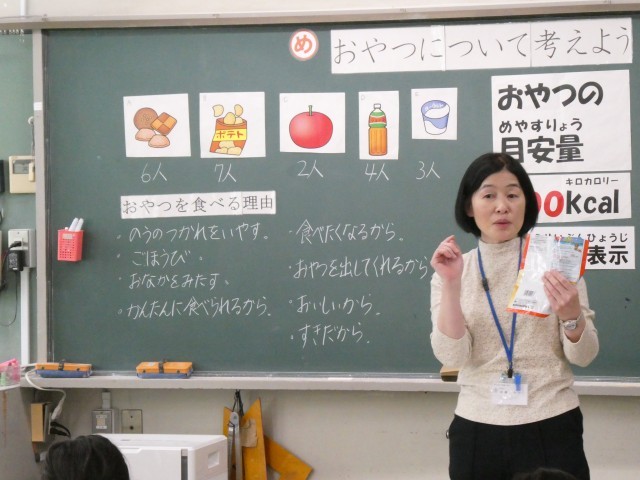 め
おやつについて考えよう
ポテト
6人
7人
2人
4人
3人
おやつの
めやすりょう
目安量
キロカロリー
00kcal
ひょうじ
表示
おやつを食べる理由
・のうのつかれをいやす。
・ごほうび
・おなかをみたす。
・かんたんに食べられるから。
・食べたくなるから。
・おやつを出してくれるから
・おいしいから。
・すきだから。